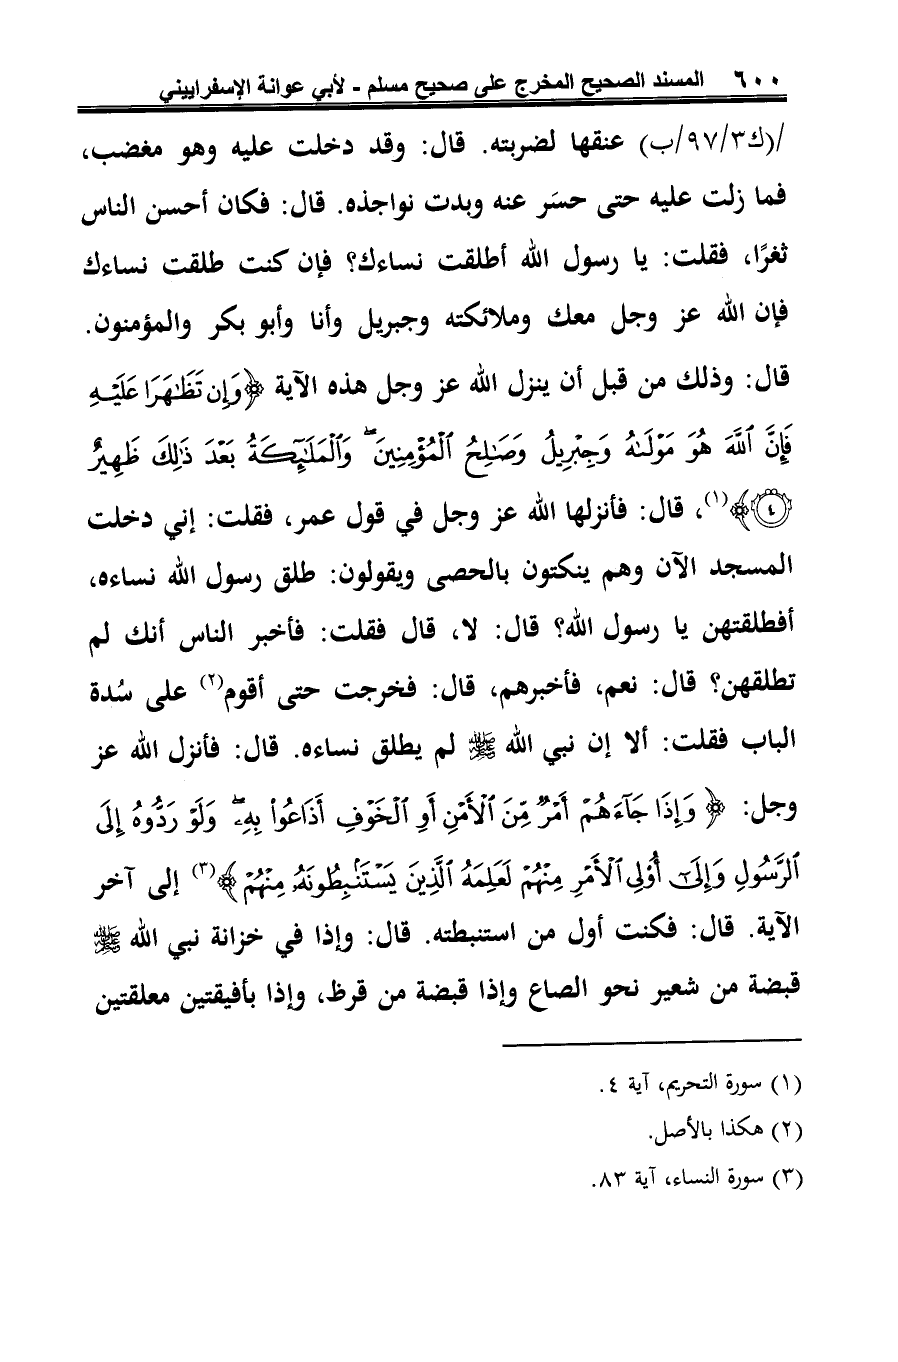 ٦٠٠ المسند الصحيح المخرج على صحيح مسلم - لأبي عوانة الإسفراييني
/(ك٩٧/٣/ب) عنقها لضربته. قال: وقد دخلت عليه وهو مغضب،
فما زلت عليه حتى حسَر عنه وبدت نواجذه. قال: فكان أحسن الناس
ثغرًا، فقلت: يا رسول الله أطلقت نساءك؟ فإن كنت طلقت نساءك
فإن الله عز وجل معك وملائكته وجبريل وأنا وأبو بكر والمؤمنون.
قال: وذلك من قبل أن ينزل الله عز وجل هذه الآية ﴿وَإِن تَظَٰهَرَا عَلَيْهِ
فَإِنَّ ٱللَّهَ هُوَ مَوْلَىٰهُ وَجِبْرِيلُ وَصَٰلِحُ ٱلْمُؤْمِنِينَ ۖ وَٱلْمَلَٰٓئِكَةُ بَعْدَ ذَٰلِكَ ظَهِيرٌ
۝٤﴾(١)، قال: فأنزلها الله عز وجل في قول عمر، فقلت: إني دخلت
المسجد الآن وهم ينكتون بالحصى ويقولون: طلق رسول الله نساءه،
أفطلقتهن يا رسول الله؟ قال: لا، قال فقلت: فأخبر الناس أنك لم
تطلقهن؟ قال: نعم، فأخبرهم، قال: فخرجت حتى أقوم(٢) على سُدة
الباب فقلت: ألا إن نبي الله ﷺ لم يطلق نساءه. قال: فأنزل الله عز
وجل: ﴿وَإِذَا جَآءَهُمْ أَمْرٌ مِّنَ ٱلْأَمْنِ أَوِ ٱلْخَوْفِ أَذَاعُوا۟ بِهِۦ ۖ وَلَوْ رَدُّوهُ إِلَى
ٱلرَّسُولِ وَإِلَىٰٓ أُو۟لِى ٱلْأَمْرِ مِنْهُمْ لَعَلِمَهُ ٱلَّذِينَ يَسْتَنۢبِطُونَهُۥ مِنْهُمْ﴾(٣) إلى آخر
الآية. قال: فكنت أول من استنبطته. قال: وإذا في خزانة نبي الله ﷺ
قبضة من شعير نحو الصاع وإذا قبضة من قرظ، وإذا بأفيقتين معلقتين
(١) سورة التحريم، آية ٤.
(٢) هكذا بالأصل.
(٣) سورة النساء، آية ٨٣.